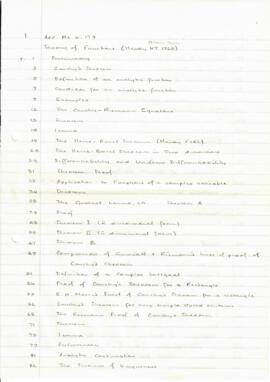 1 Add. Ms a. 179
Theory of Functions (Hardy MT 1902)
p. 1 Preliminary
2 Cauchy's Theorem
5 Definition of an analytic function
7 Condition for an analytic function
9 Examples
12 The Cauchy-Riemann Equations
15 Theorem
18 Lemma
19 The Heine-Borel Theorem
24 The Heine-Borel Theorem in Two dimensions
Differentiability and Uniform Differentiability
31 Theorem Proof
Application to Functions of a complex variable
Theorem
The General Lemma
Theorem A
Proof
Theorem I (2 dimensional form)
Theorem II (2 dimensional form)
Theorem B
Comparison of Goursat's & Riemann's lines of proof of
Cauchy's Theorem
Definition of a Complex Integral
Proof of Cauchy's Theorem for a Rectangle
E. H. Moore's Proof of Cauchy's Theorem for a rectangle
Cauchy's Theorem for any simple closed contour
The Riemann Proof of Cauchy's Theorem
Theorem
Lemma
Analytic Continuation
The Theorem of Uniqueness